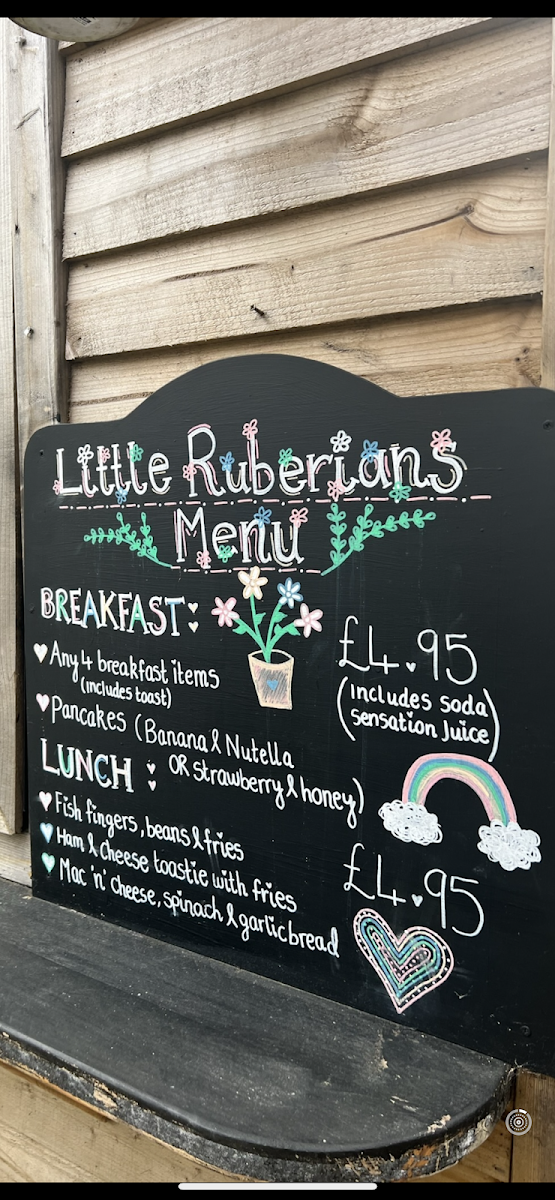 Little Ruberians
Menu
BREAKFAST:
Any 4 breakfast items
(includes toast)
Pancakes (Banana & Nutella
OR strawberry & honey)
£4.95
(includes soda
sensation juice)
LUNCH:
Fish fingers, beans & fries
Ham & cheese toastie with fries
Mac 'n' cheese, spinach & garlic bread
£4.95